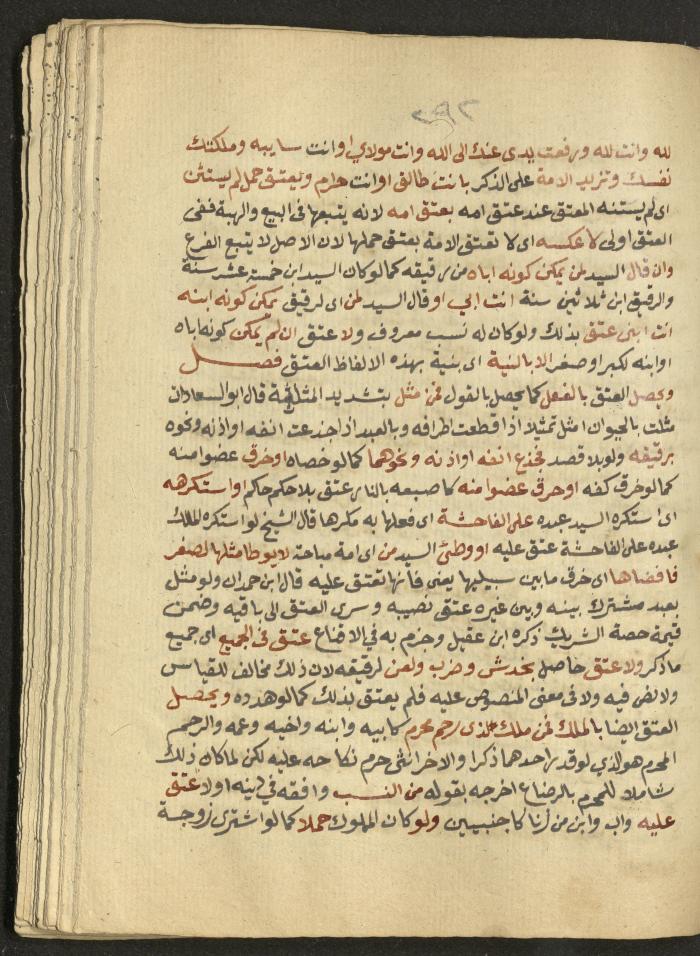 ٢٩٢
لله وانت لله ورفعت يدي عنك الى الله وانت مولاي او انت سايبه وملكتك
نفسك وتزيد الامة على الذكر بانت طالق او انت حرام وبعتق حمل لم يستثن
اى لم يستثنه المعتق عند عتق امه بعتق امه لانه يتبعها فى البيع والهبة ففى
العتق اولى لا عكسه اى لا تعتق الامة بعتق حملها لان الاصل لا يتبع الفرع
وان قال السيد لمن يمكن كونه اباه من رقيقه كما لو كان السيد ابن خمسة عشر سنة
والرقيق ابن ثلاثين سنة انت ابي او قال السيد لمن اى لرقيق يمكن كونه ابنه
انت ابنى عتق بذلك ولو كان له نسب معروف ولا عتق ان لم يمكن كونه اباه
او ابنه لكبر او صغر الا بالنية اى بنية بهذه الالفاظ العتق فصل
ويحصل العتق بالفعل كما يحصل بالقول فمن مثل بتشديد المثلثة قال ابو السعادات
مثلت بالحيوان امثل تمثيلا اذا قطعت اطرافه وبالعبد اذا جدعت انفه او اذنه ونحوه
برقيقه ولو بلا قصد فجدع انفه او اذنه ونحوهما كما لو خصاه او خرق عضوا منه
كما لو خرق كفه او حرق عضوا منه كاصبعه بالنار عتق بلا حكم حاكم او استكرهه
اى استكره السيد عبده على الفاحشة اى فعلها به مكرها قال الشيخ لو استكره المالك
عبده على الفاحشة عتق عليه او وطئ السيد من اى امة مباحة لا يوطا مثلها لصغر
فافضاها اى خرق ما بين سبيليها يعنى فانها تعتق عليه قال ابن حمدان ولو مثل
بعبد مشترك بينه وبين غيره عتق نصيبه وسرى العتق الى باقيه وضمن
قيمة حصة الشريك ذكره ابن عقيل وجزم به في الاقناع عتق فى الجميع اى جميع
ما ذكر ولا عتق حاصل بخدش وضرب ولعن لرقيقه لان ذلك مخالف للقياس
ولا نص فيه ولا فى معنى المنصوص عليه فلم يعتق بذلك كما لو هدده ويحصل
العتق ايضا بالملك فمن ملك لذى رحم محرم كابيه وابنه واخيه وعمه والرحم
المحرم هو الذي لو قدر احدهما ذكرا والاخر انثى حرم نكاحه عليه لكن لما كان ذلك
شاملا للمحرم بالرضاع اخرجه بقوله من النسب وافقه في دينه او لا عتق
عليه واب وابن من زنا كاجنبيين ولو كان المملوك حملا كما لو اشترى زوجة